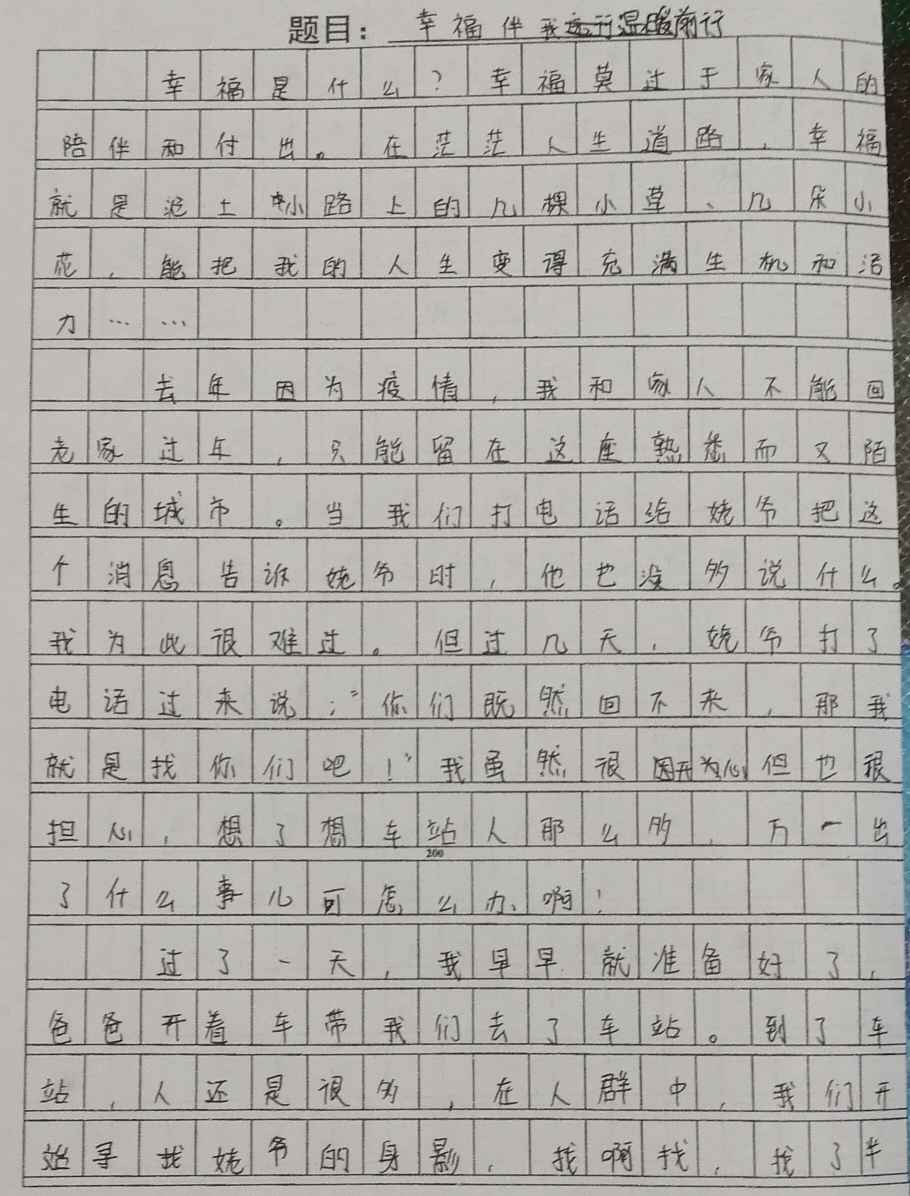 题目：幸福伴我温暖前行
幸福是什么？幸福莫过于家人的
陪伴和付出。在茫茫人生道路，幸福
就是泥土小路上的几棵小草、几朵小
花，能把我的人生变得充满生机和活
力……
去年因为疫情，我和家人不能回
老家过年，只能留在这座熟悉而又陌
生的城市。当我们打电话给姥爷把这
个消息告诉姥爷时，他也没多说什么。
我为此很难过。但过几天，姥爷打了
电话过来说；“你们既然回不来，那我
就是找你们吧！”我虽然很开心但也很
担心，想了想车站人那么多，万一出
200
了什么事儿可怎么办啊！
过了一天，我早早就准备好了，
爸爸开着车带我们去了车站。到了车
站，人还是很多，在人群中，我们开
始寻找姥爷的身影，找啊找，找了半